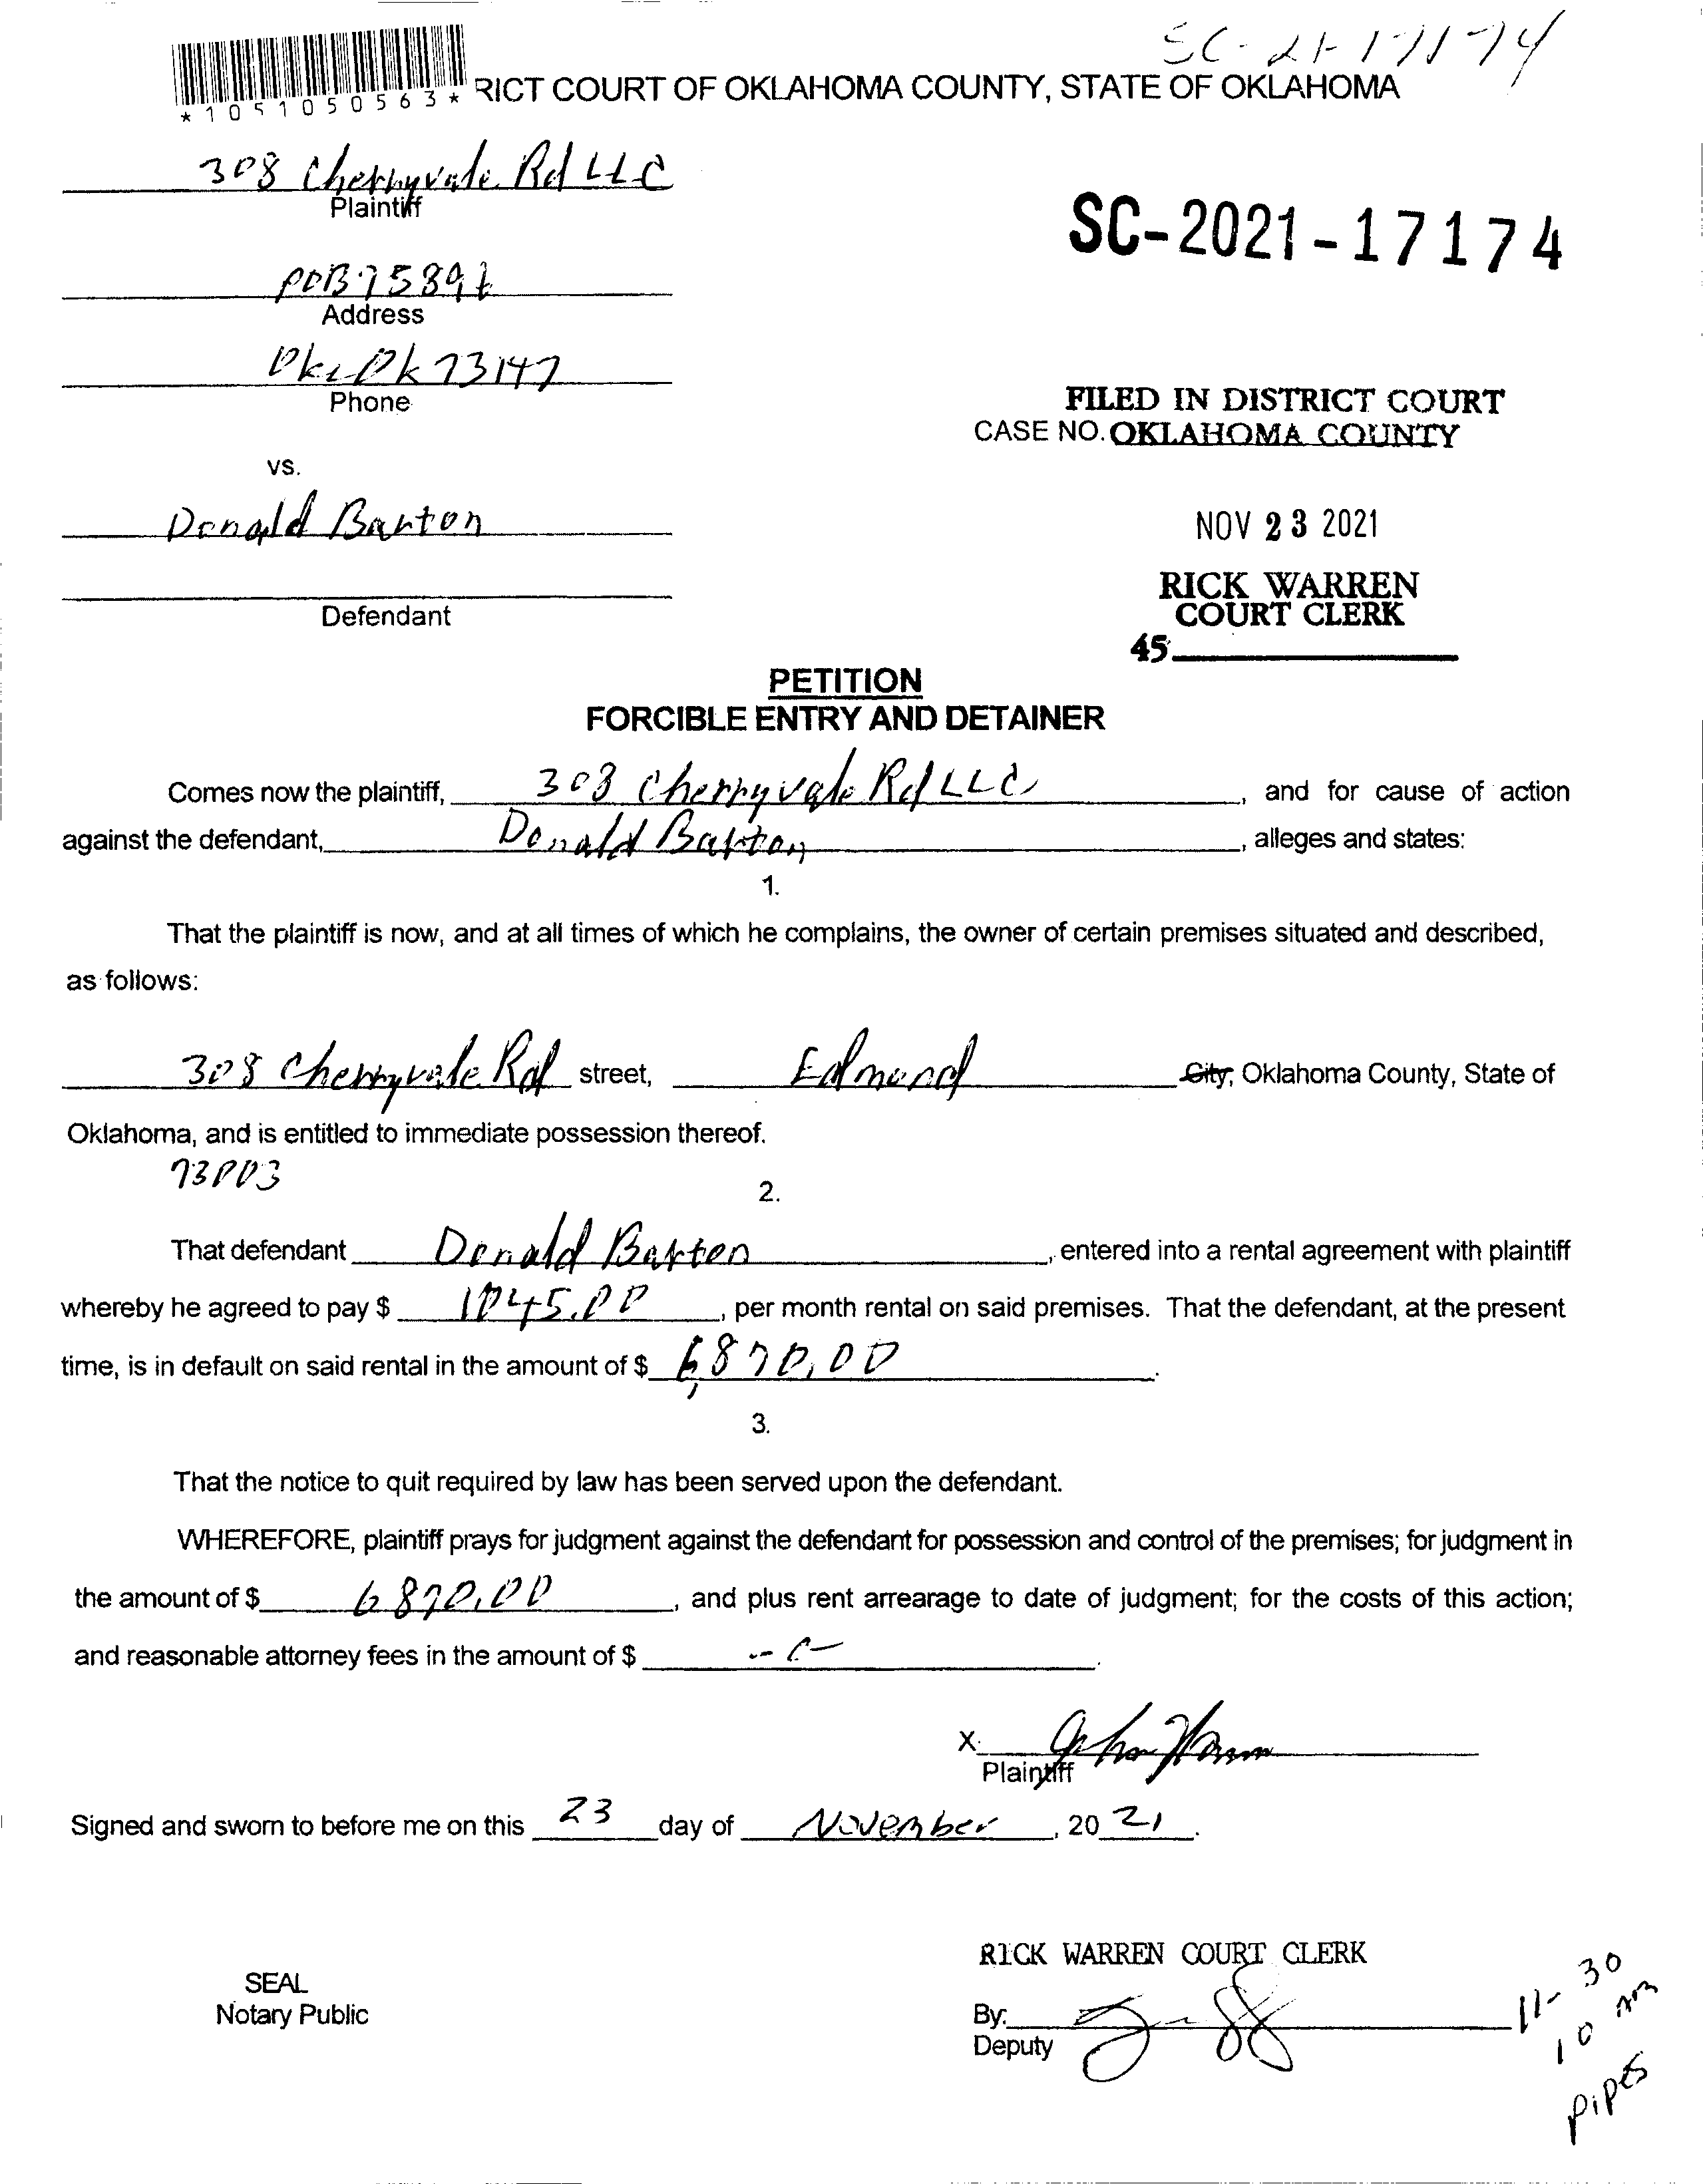 SC-21-17174
*1051050563* RICT COURT OF OKLAHOMA COUNTY, STATE OF OKLAHOMA
308 Cherryvale Rd LLC
Plaintiff
SC-2021-17174
POB 75891
Address
Okc Ok 73147
Phone
FILED IN DISTRICT COURT
CASE NO. OKLAHOMA COUNTY
vs.
Donald Barton
NOV 23 2021
RICK WARREN
COURT CLERK
Defendant
45
PETITION
FORCIBLE ENTRY AND DETAINER
Comes now the plaintiff, 308 Cherryvale Rd LLC, and for cause of action
against the defendant, Donald Barton, alleges and states:
1.
That the plaintiff is now, and at all times of which he complains, the owner of certain premises situated and described,
as follows:
308 Cherryvale Rd street, Edmond City, Oklahoma County, State of
Oklahoma, and is entitled to immediate possession thereof.
73003
2.
That defendant Donald Barton, entered into a rental agreement with plaintiff
whereby he agreed to pay $ 1045.00, per month rental on said premises. That the defendant, at the present
time, is in default on said rental in the amount of $ 6,870.00.
3.
That the notice to quit required by law has been served upon the defendant.
WHEREFORE, plaintiff prays for judgment against the defendant for possession and control of the premises; for judgment in
the amount of $ 6870.00, and plus rent arrearage to date of judgment; for the costs of this action;
and reasonable attorney fees in the amount of $ -0-.
X
Plaintiff
Signed and sworn to before me on this 23 day of November, 20 21.
RICK WARREN COURT CLERK
SEAL
Notary Public
By:
Deputy
11-30
10 am
Pipes